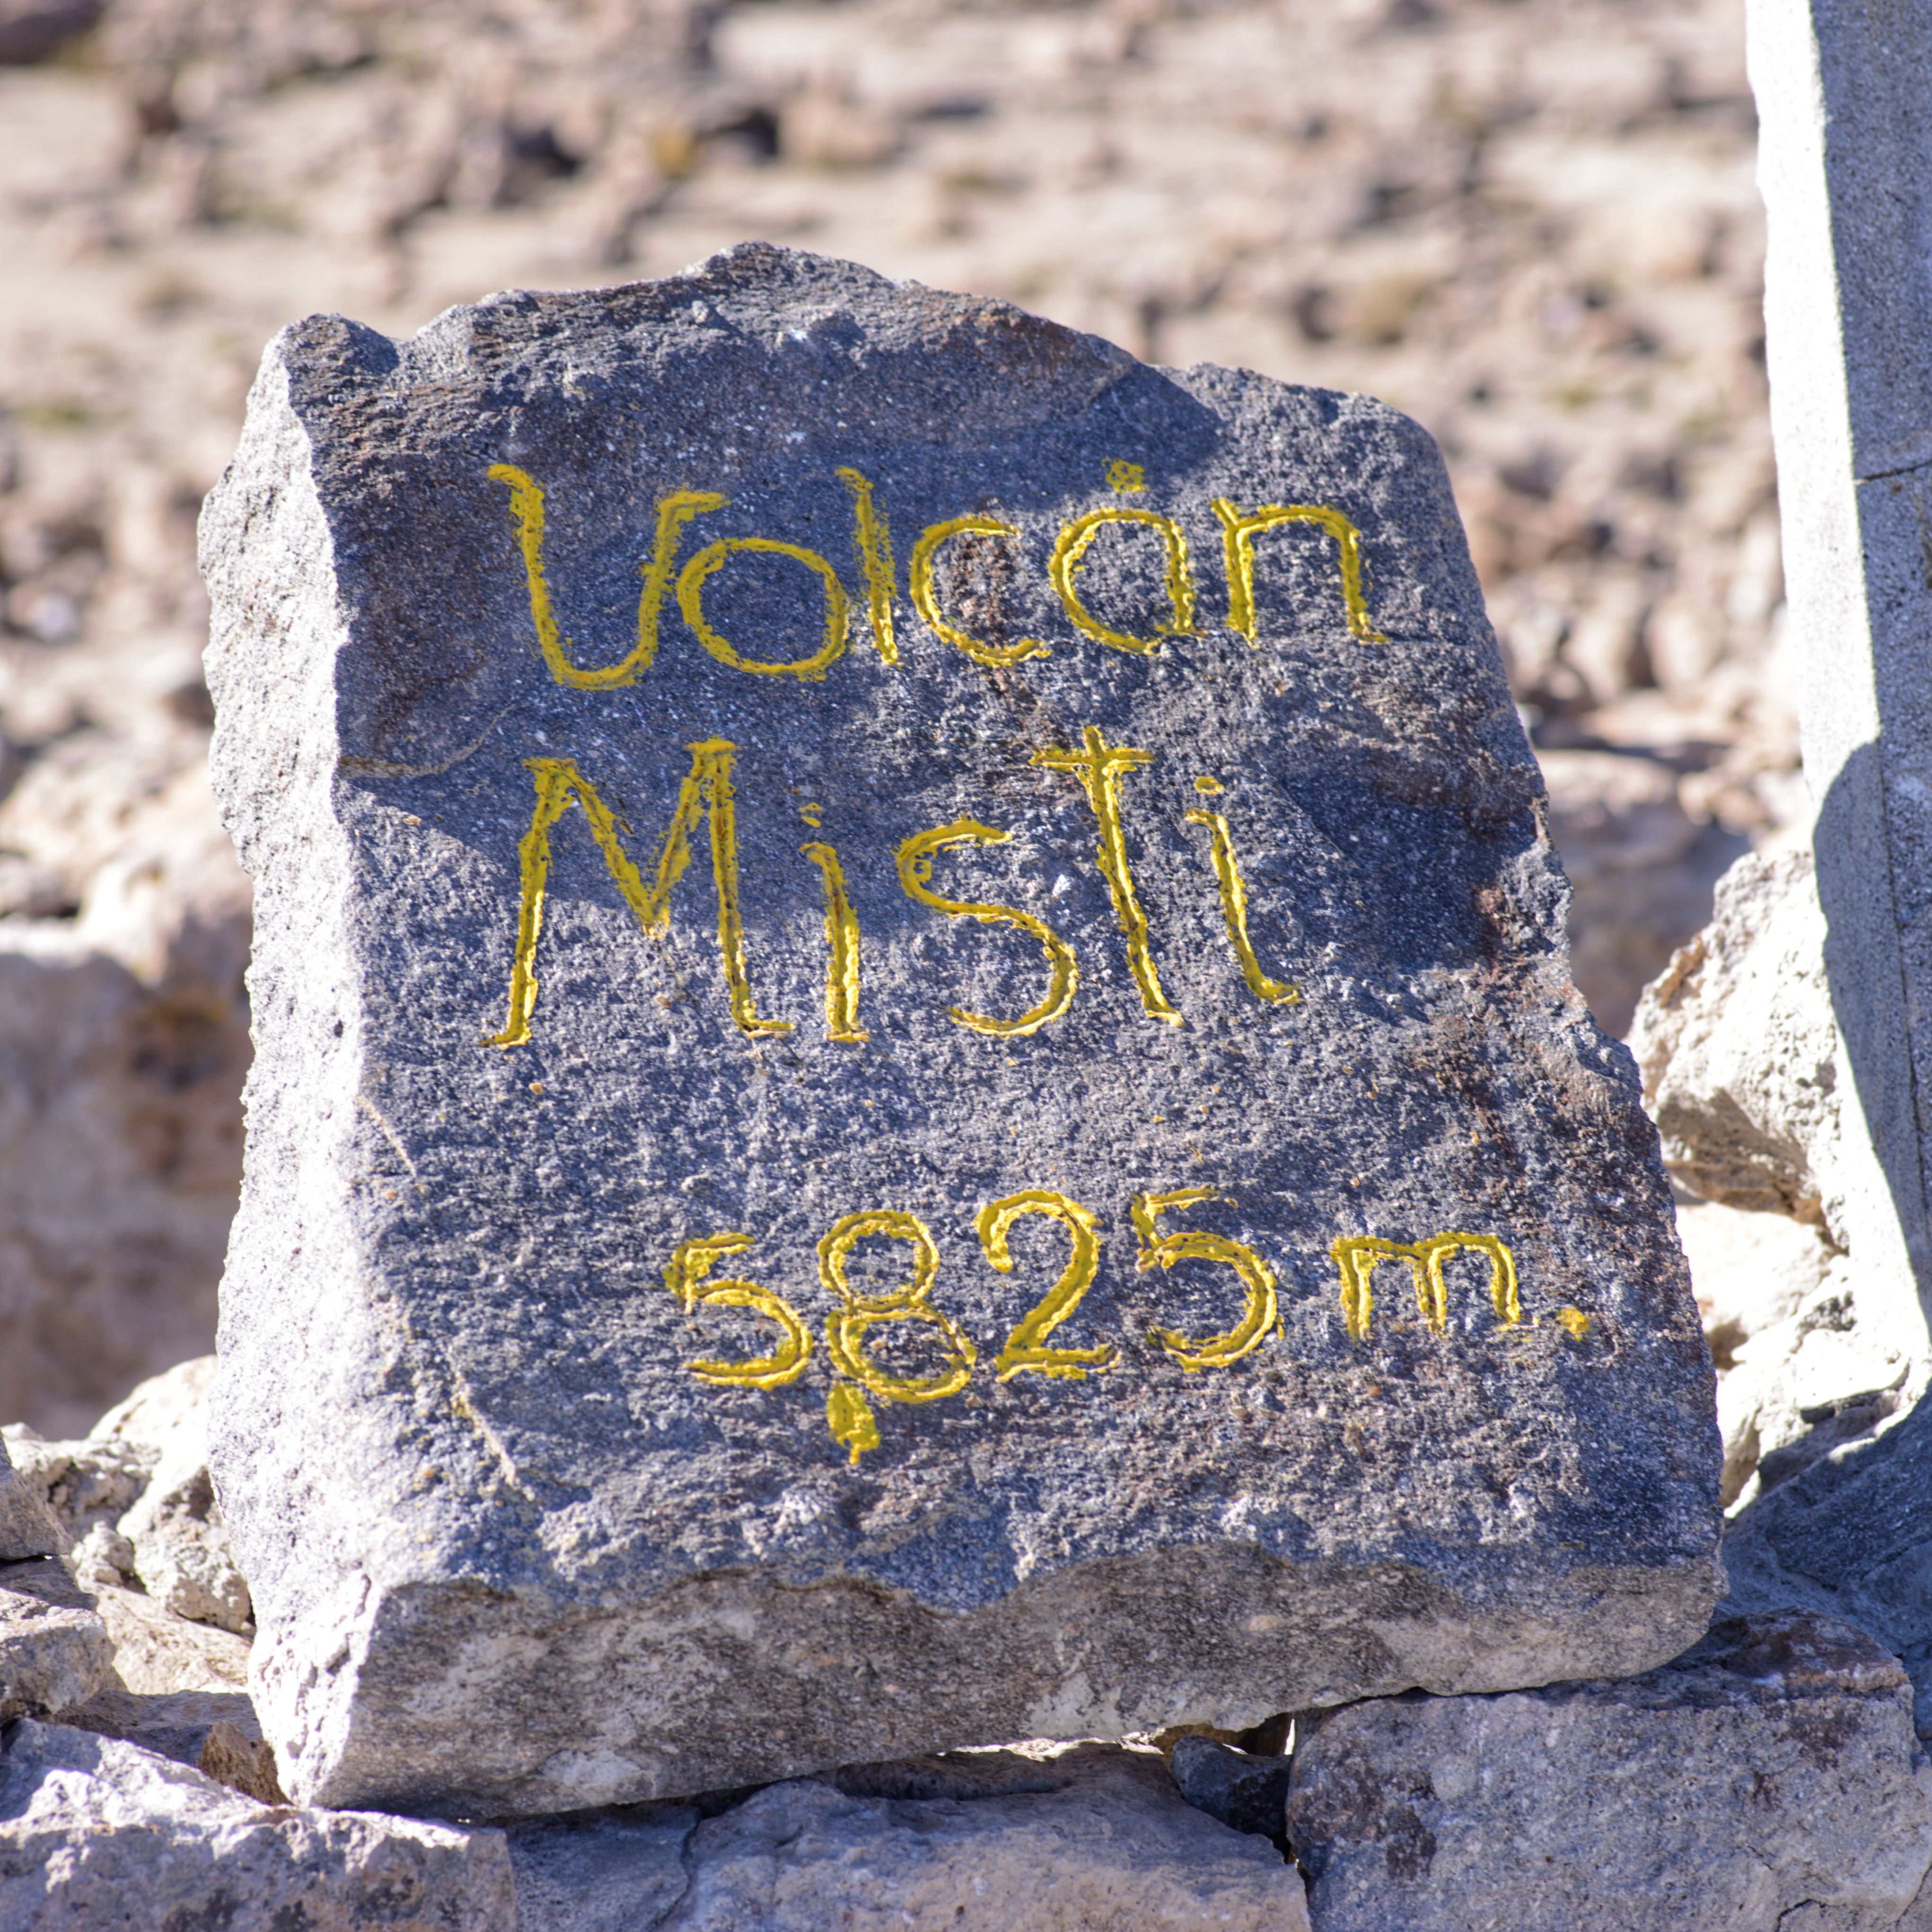 Volcán
Misti
5825 m.